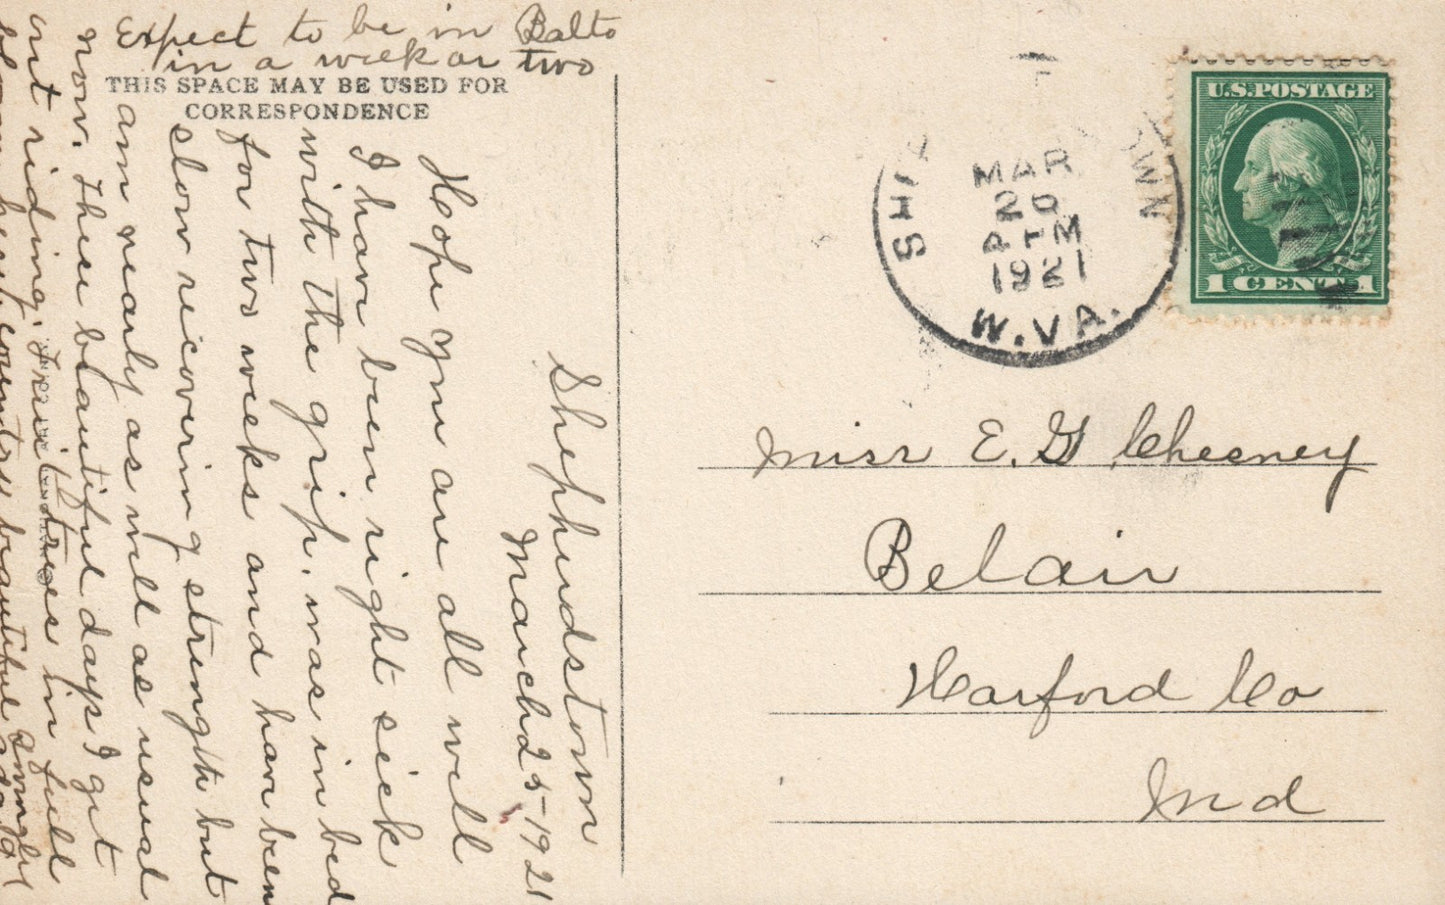 Expect to be in Balto
in a week or two
THIS SPACE MAY BE USED FOR
CORRESPONDENCE
Shepherdstown
March 25-1921
Hope you are all well
I have been right sick
with the grip. was in bed
for two weeks and have been
slow recovering strength but
am nearly as well as usual
now. These beautiful days I get
out riding. Fruit trees in full
bloom here, country beautiful
U.S. POSTAGE
1 CENT 1
MAR
20
PM
1921
W.VA.
Miss E. G Chesney
Belair
Harford Co
Md